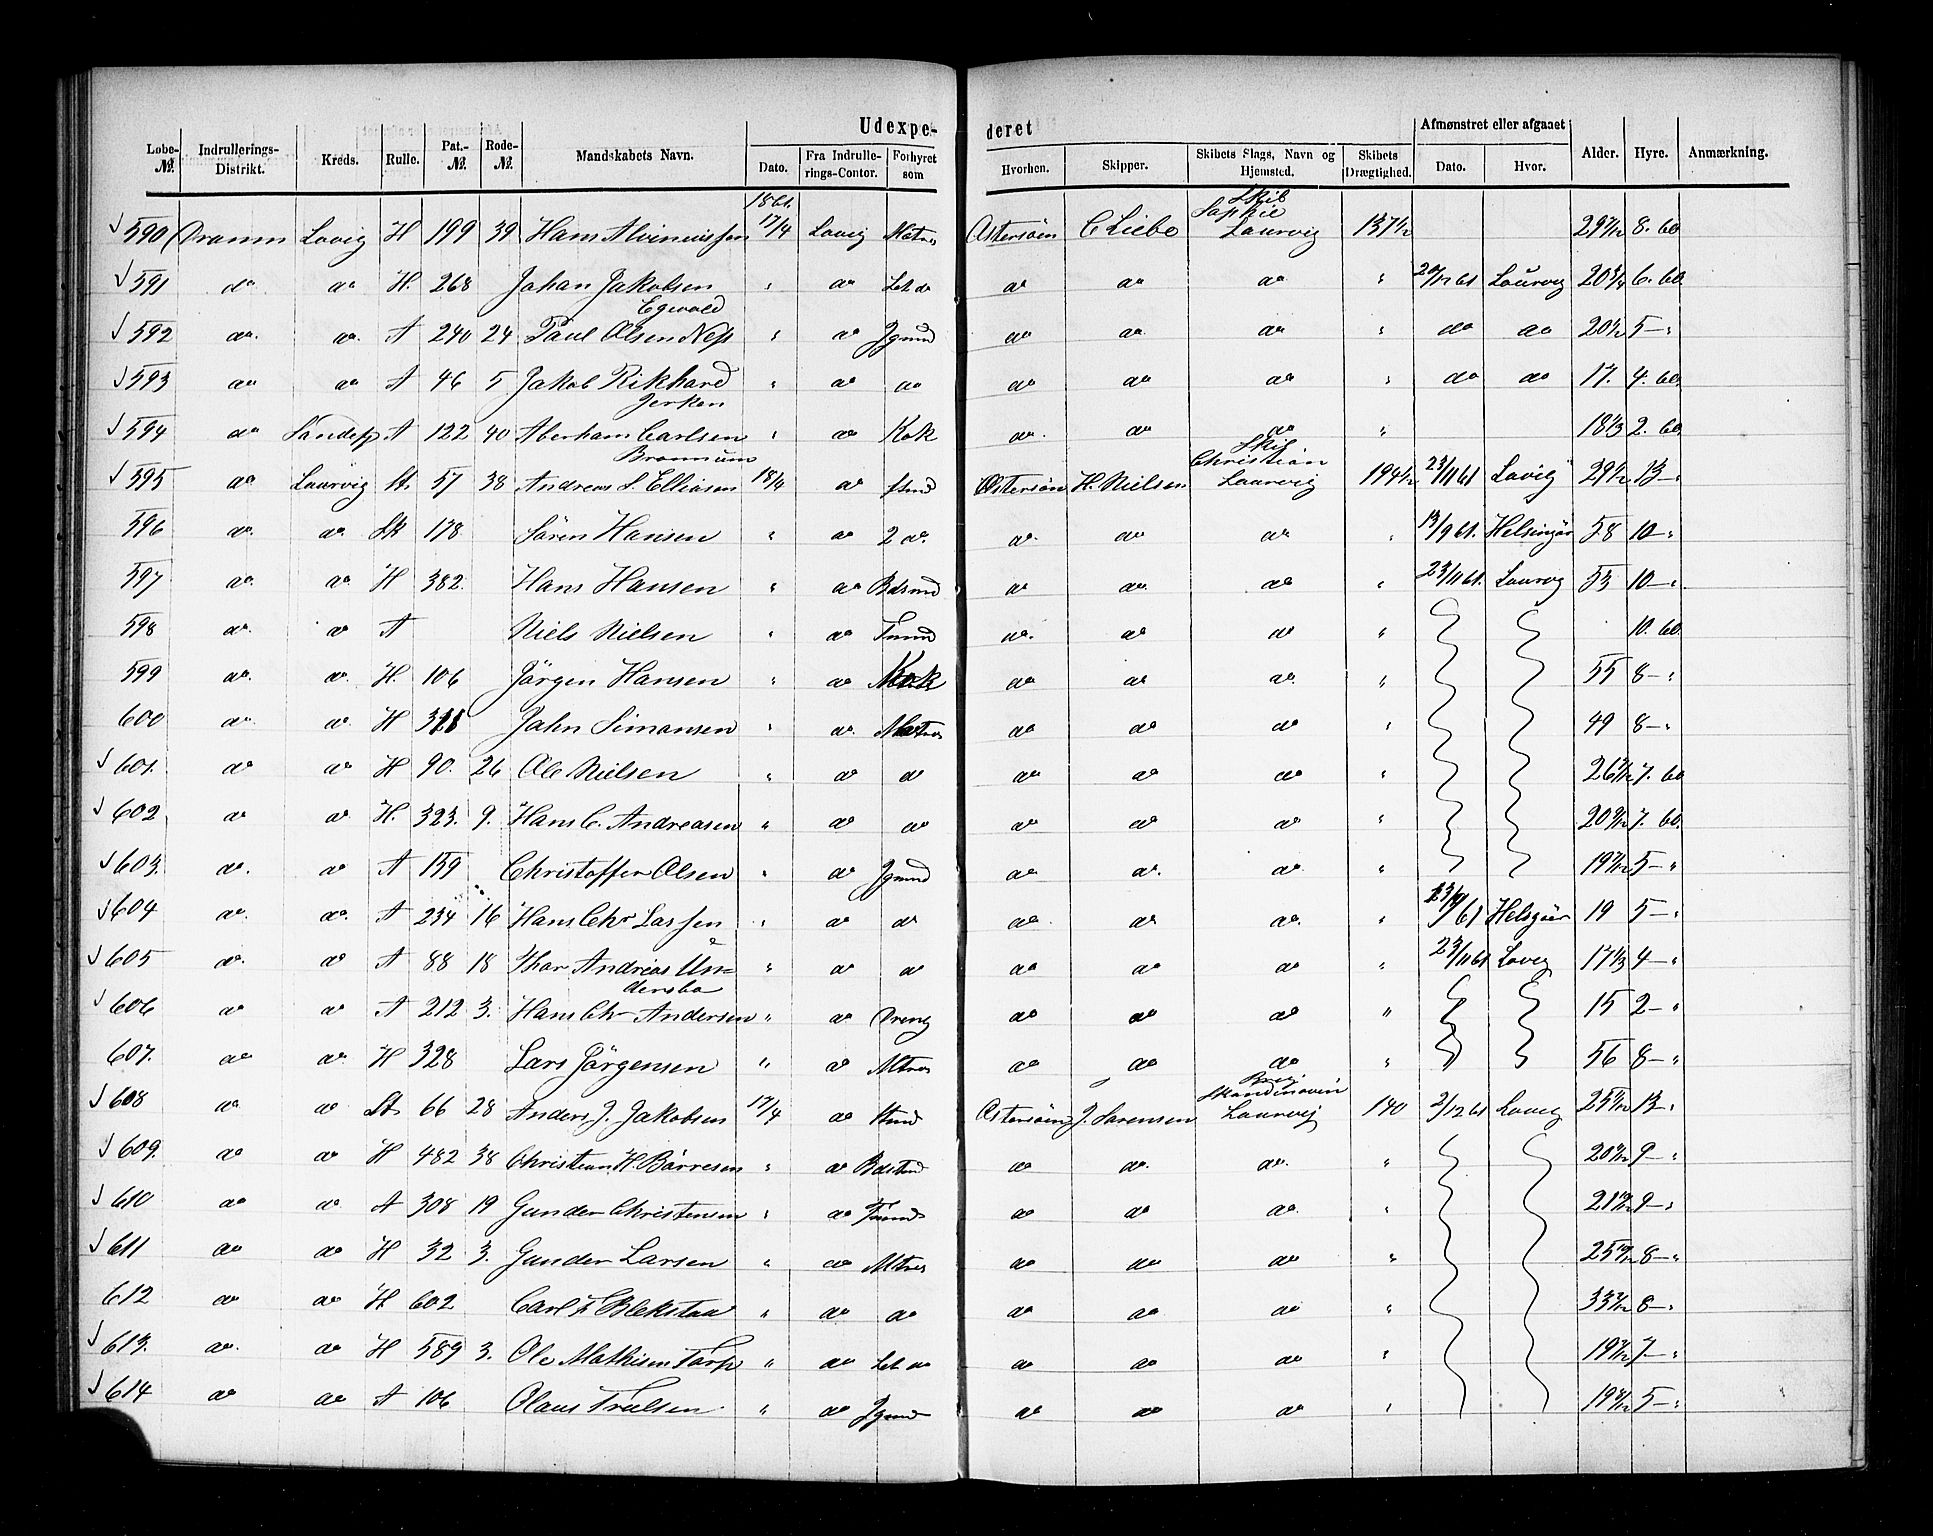 Udexpe- deret
Løbe-№. Indrullerings-Distrikt. Kreds. Rulle. Pat.-№. Rode-№. Mandskabets Navn. Dato. Fra Indrullerings-Contor. Forhyret som Hvorhen. Skipper. Skibets Slags, Navn og Hjemsted. Skibets Drægtighed. Afmønstret eller afgaaet Dato. Hvor. Alder. Hyre. Anmærkning.
1861.
590 Dramm Lovig H 199 39 Hans 17/4 Lovig Matros Østersøen C Liebe Skib Sophie Laurvig 137½ 8. 60
591 do do H. 268 Johan Jakobsen Egwold " do Let do do do do " 20/12 61 Laurvig 20¾ 6. 60
592 do. do. A 240 24 Paul Olsen Ness " do Jgmd do do. do " do do 5 - "
593 do do A 46 5 Jakob Rikhard Jerken " do do do do do " do do 17. 4. 60.
594 do A 122 40 Aberham Carlsen " do Kok do. do do " 18⅓ 2. 60
595 do Laurvig St. 57 38 Andreas S. Elliasen 18/4 do Stmd Østersøen H. Nielsen Skib Christian Laurvig 194½ 23/11 61 Lovig 29½ 13 - "
596 do. do. St 138 Søren Hansen " do 2 do. do. do do " 13/9 61. Helsingør 58 10 - "
597 do. do H 382. Hans Hansen " do Bdsmd do do. do " 23/11 61. Laurvig 53 10 - "
598 do. do A Niels Nielsen " do Tmmd do. do do " 10. 60.
599 do. do. H. 106 Jörgen Hansen " do Kok do do do. " 55 8 - "
600 do. do. H John Simonsen " do. Matros do do do " 49 8 - "
601. do do H 90. 26 Ole Nielsen " do do do do do " 7. 60
602 do do H. 323. 9. Hans C. Andreasen " do do do do do " 7. 60.
603. do. do A 159 Christoffer Olsen " do Jgmd do do. do " 5 - "
604 do. do. A 234 16 Hans Chr Larssen " do do do do do. " Helsgør 19 5 - "
605 do. do A 88 18 Thor Andreas Un= dersbo " do do do do do " 23/11 61 Lovig 17⅓ 4 - "
606 do do A 212 3. Hans Chr Andersen " do Dreng do do do " 15 2 - "
607. do do. H 328 Lars Jörgensen " do Mtros do do do " 56 8 - "
608 do do St. 66 28 Anders J. Jakobsen 17/4 do Stmd Østersøen J. Sørensen Brig Skandinavin Laurvig 140 2/12 61 Lovig 13 - "
609. do do H 482 38 Christian H. Børresen " do Bdstmd do do. do. " 9 - "
610 do do. A 308 19 Gunder Christensen " do Tmmd do do do. " 9 - "
611 do do H 32 3. Gunder Larsen " do Mtros do do do " 8 - "
612 do do H 602 Carl F Blekstad " do do do do do " 8 - "
613. do. do H 589 3. Ole Mathisen Torp " do Let do do do do " 7 - "
614 do do A 106 Olaus Trulsen. " do Jgmd do do do " 5 - "